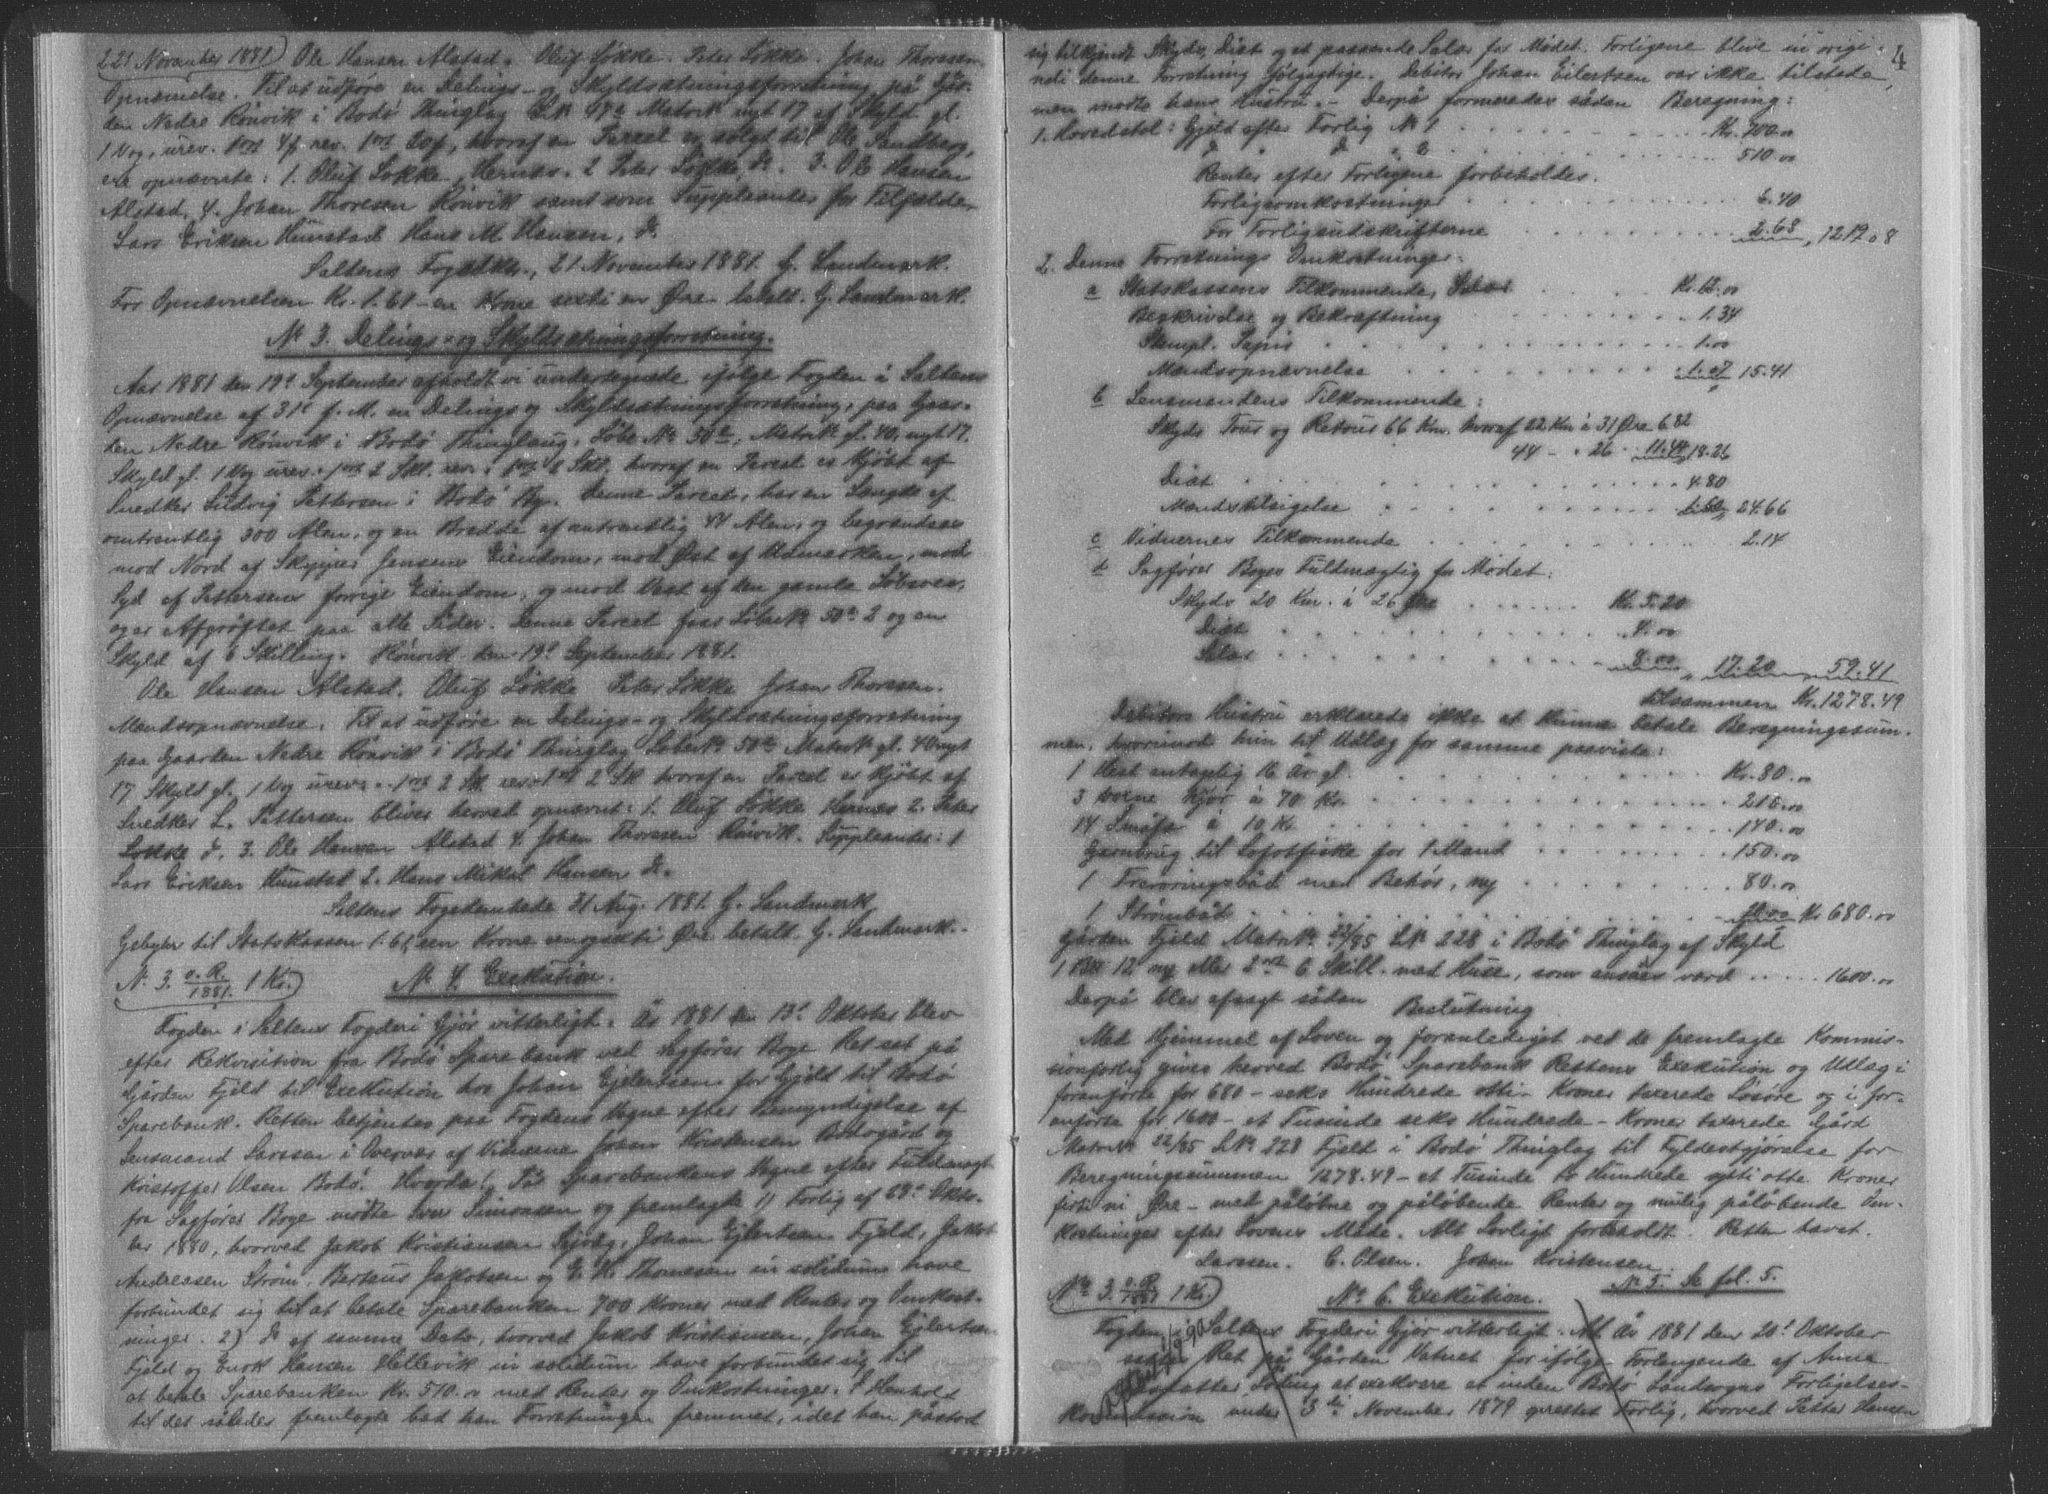 22' November 1881) Ole Hansen Alstad. Oluf Løkke. Peter Løkke. Johan Thoresen.
Opnævnelse. Til at udføre en Delings- og Skyldsætningsforretning på Går-
den Nedre Rönvik i Bodö Thinglag LN 47a Matrik nyt 17 af Skyld gl.
1 Vog, urev. 1 ort 4 f rev. 1 ort 20 f, hvoraf en Parcel er solgt til Ole Sandberg,
ere opnævnte: 1. Oluf Løkke, Hernes. 2 Peter Løkke, do. 3. Ole Hansen
Alstad, 4. Johan Thoresen Rönvik samt som Suppleanter for Tilfælde
Lars Eriksen Hunstad Hans M. Hansen, do.
Saltens Fogderi, 21 November 1881. G. Landmark.
For Opnævnelsen Kr. 1.61 - en Krone sexti en Øre - betalt. G. Landmark.
No 3. Delings- og Skyldsætningsforretning.
Aar 1881 den 19de September afholdt vi undertegnede ifølge Fogden i Saltens
Opnævnelse af 31te f. M. en Delings og Skyldsætningsforretning, paa Gaar-
den Nedre Rönvik i Bodö Thinglaug, Løbe No 50a, Matrik gl. 40, nyt 17.
Skyld gl. 1 Vog urev. 1 ort 2 Skl. rev. 1 ort 2 Skl. hvoraf en Parcel er kjøbt af
Snedker Ludvig Pettersen i Bodö By. Denne Parcel, har en Længde af
omtrentlig 300 Alen, og en Bredde af omtrentlig 44 Alen, og begrændses
mod Nord af Skipper Jensens Eiendom, mod Øst af Udmarken, mod
Syd af Pettersens forrige Eiendom, og mod Vest af den gamle
og er Afgrøftet paa alle Sider. Denne Parcel faar Løbe No 50a 2 og en
Skyld af 6 Skilling. Rönvik den 19de September 1881.
Ole Hansen Alstad. Oluf Løkke Peter Løkke Johan Thoresen.
Mandsopnævnelse. Til at udføre en Delings- og Skyldsætningsforretning
paa Gaarden Nedre Rönvik i Bodö Thinglag Løbe No 50a Matrik gl. 40 nyt
17 Skyld gl. 1 Vog urev. 1 ort 2 Sk. rev. 1 ort 2 Sk hvoraf en Parcel er kjøbt af
Snedker L. Pettersen bliver herved opnævnt: 1. Oluf Løkke Hernes 2. Peter
Løkke do. 3. Ole Hansen Alstad 4. Johan Thoresen Rönvik. Suppleanter: 1
Lars Eriksen Hunstad 2. Hans Mikal Hansen do.
Saltens Fogedembede 31 Aug. 1881. G. Landmark
Gebyhr til Statskassen 1.61, een Krone enogsexti Øre betalt. G. Landmark.
N. 3. o.R./1881. 1 Kr.) No 4. Exekution.
Fogden i Saltens Fogderi Gjør vitterligt. År 1881 den 13de Oktober blev
efter Rekvisition fra Bodö Sparebank ved Sagfører Boge Ret sat på
Gården Fjeld til Exekution hos Johan Ejlertsen for Gjeld til Bodö
Sparebank. Retten betjentes paa Fogdens Vegne efter Bemyndigelse af
Lensmand Larssen i Overvær af Vidnerne Johan Kristensen Bodøgård og
Kristoffer Olsen Bodö. Hvorda: På Sparebankens Vegne efter Fuldmagt
fra Sagfører Boge mødte Iver Simonsen og fremlagte 1) Forlig af 6te Okto-
ber 1880, hvorved Jakob Kristiansen, Johan Ejlertsen Fjeld, Jakob
Andreasen Strøm, Berteus Jakobsen og E. H. Thomesen in solidum have
forbundet sig til at betale Sparebanken 700 Kroner med Renter og Omkost-
ninger. 2) do af samme Dato, hvorved Jakob Kristiansen, Johan Ejlertsen
Fjeld og Enok Hansen Hellevik in solidum have forbundet sig til
at betale Sparebanken Kr. 510.00 med Renter og Omkostninger. I Henhold
til det således fremlagte bad han Forretningen fremmet, idet han påstod
4
sig tilkjendt Skyds, Diæt og et passende Salær for Mødet. Forligene blive in origi-
nali denne Forretning følgagtige. Debitor Johan Eilertsen var ikke tilstede,
men mødte hans Hustru. - Derpå formeredes sådan Beregning:
1. Hovedstol: Gjeld efter Forlig No 1 . . . Kr. 700.00
do " do " 2 . . . 510.00
Renter efter Forligene forbeholdes.
Forligsomkostninger . . . 6.40
For Forligsudskrifterne . . . 2.68, 1219.08
2. Denne Forretnings Omkostninger:
a Statskassens Tilkommende, Salær . . . Kr. 12.00
Beskrivelse og Bekræftning . . . 1.34
Stempl. Papir . . . 1.00
Mandsopnævnelse . . . 1.07 15.41
b Lensmandens Tilkommende:
Skyds Tour og Retour 66 Km. hvoraf 22 Km à 31 Øre 6.82
44 - " 26 " 11.44 18.26
Diæt . . . 4.80
Mandstilsigelse . . . 1.60, 24.66
c Vidnernes Tilkommende . . . 2.14
d Sagfører Boges Fuldmægtig for Mødet:
Skyds 20 Km. à 26 Øre . . . Kr. 5.20
Diæt . . . 4.00
Salær . . . 8.00, 17.20 59.41
tilsammen Kr. 1278.49
Debitors Hustru erklærede ikke at kunne betale Beregningssum-
men, hvorimod hun til Udlæg for samme påviste:
1 Hest antagelig 16 År gl. . . . Kr. 80.00
3 voxne Kjør à 70 Kr. . . . 210.00
14 Småfæ à 10 Kr . . . 140.00
Garnbrug til Lofotfiske for 1 Mand . . . 150.00
1 Fræringsbåd med Behör, ny . . . 80.00
1 Strömbåd . . . 20.00 Kr 680.00
Gården Fjeld Matr No 22/85 LNo 228 i Bodö Thinglag af Skyld
12 ny eller 2 ort 6 Skill. med Huse, som ansåes værd . . . 1600.00
Derpå blev afsagt sådan Beslutning
Med Hjemmel af Loven og foranlediget ved de fremlagte Kommis-
sionsforlig gives herved Bodö Sparebank Rettens Exekution og Udlæg i
foranførte for 680 - seks Hundrede otti - Kroner taxerede Løsøre og i for-
anførte for 1600 - et Tusinde seks Hundrede - Kroner taxerede Gård
Matr No 22/85 LNo 228 Fjeld i Bodö Thinglag til Fyldestgjørelse for
Beregningssummen 1278.49 - et Tusinde to Hundrede sytti otte Kroner
firti ni Øre - med påløbne og påløbende Renter og mulig påløbende Om-
kostninger efter Lovens Måde. Alt Lovligt forbeholdt. Retten hævet.
Larssen. C. Olsen. Johan Kristensen.
No 3. o.R./1881 1 Kr.) No 6. Exekution. No 5. Se fol. 5.
Fogden i Saltens Fogderi Gjør vitterligt. At År 1881 den 20de Oktober
sattes Ret på Gården Vatnet for ifølge Forlangende af Anna
at exekvere et inden Bodö Landsogns Forligelses-
Kommission under 3die November 1879 oprettet Forlig, hvorved Petter Hansen